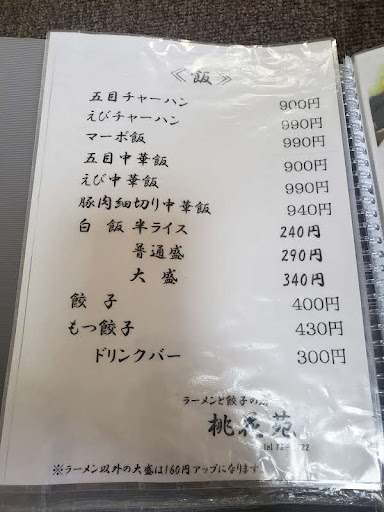 ≪飯≫
五目チャーハン 900円
えびチャーハン 990円
マーボ飯 990円
五目中華飯 900円
えび中華飯 990円
豚肉細切り中華飯 940円
白飯 半ライス 240円
普通盛 290円
大盛 340円
餃子 400円
もつ餃子 430円
ドリンクバー 300円
ラーメンと餃子の
桃花苑
tel
※ラーメン以外の大盛は160円アップになります